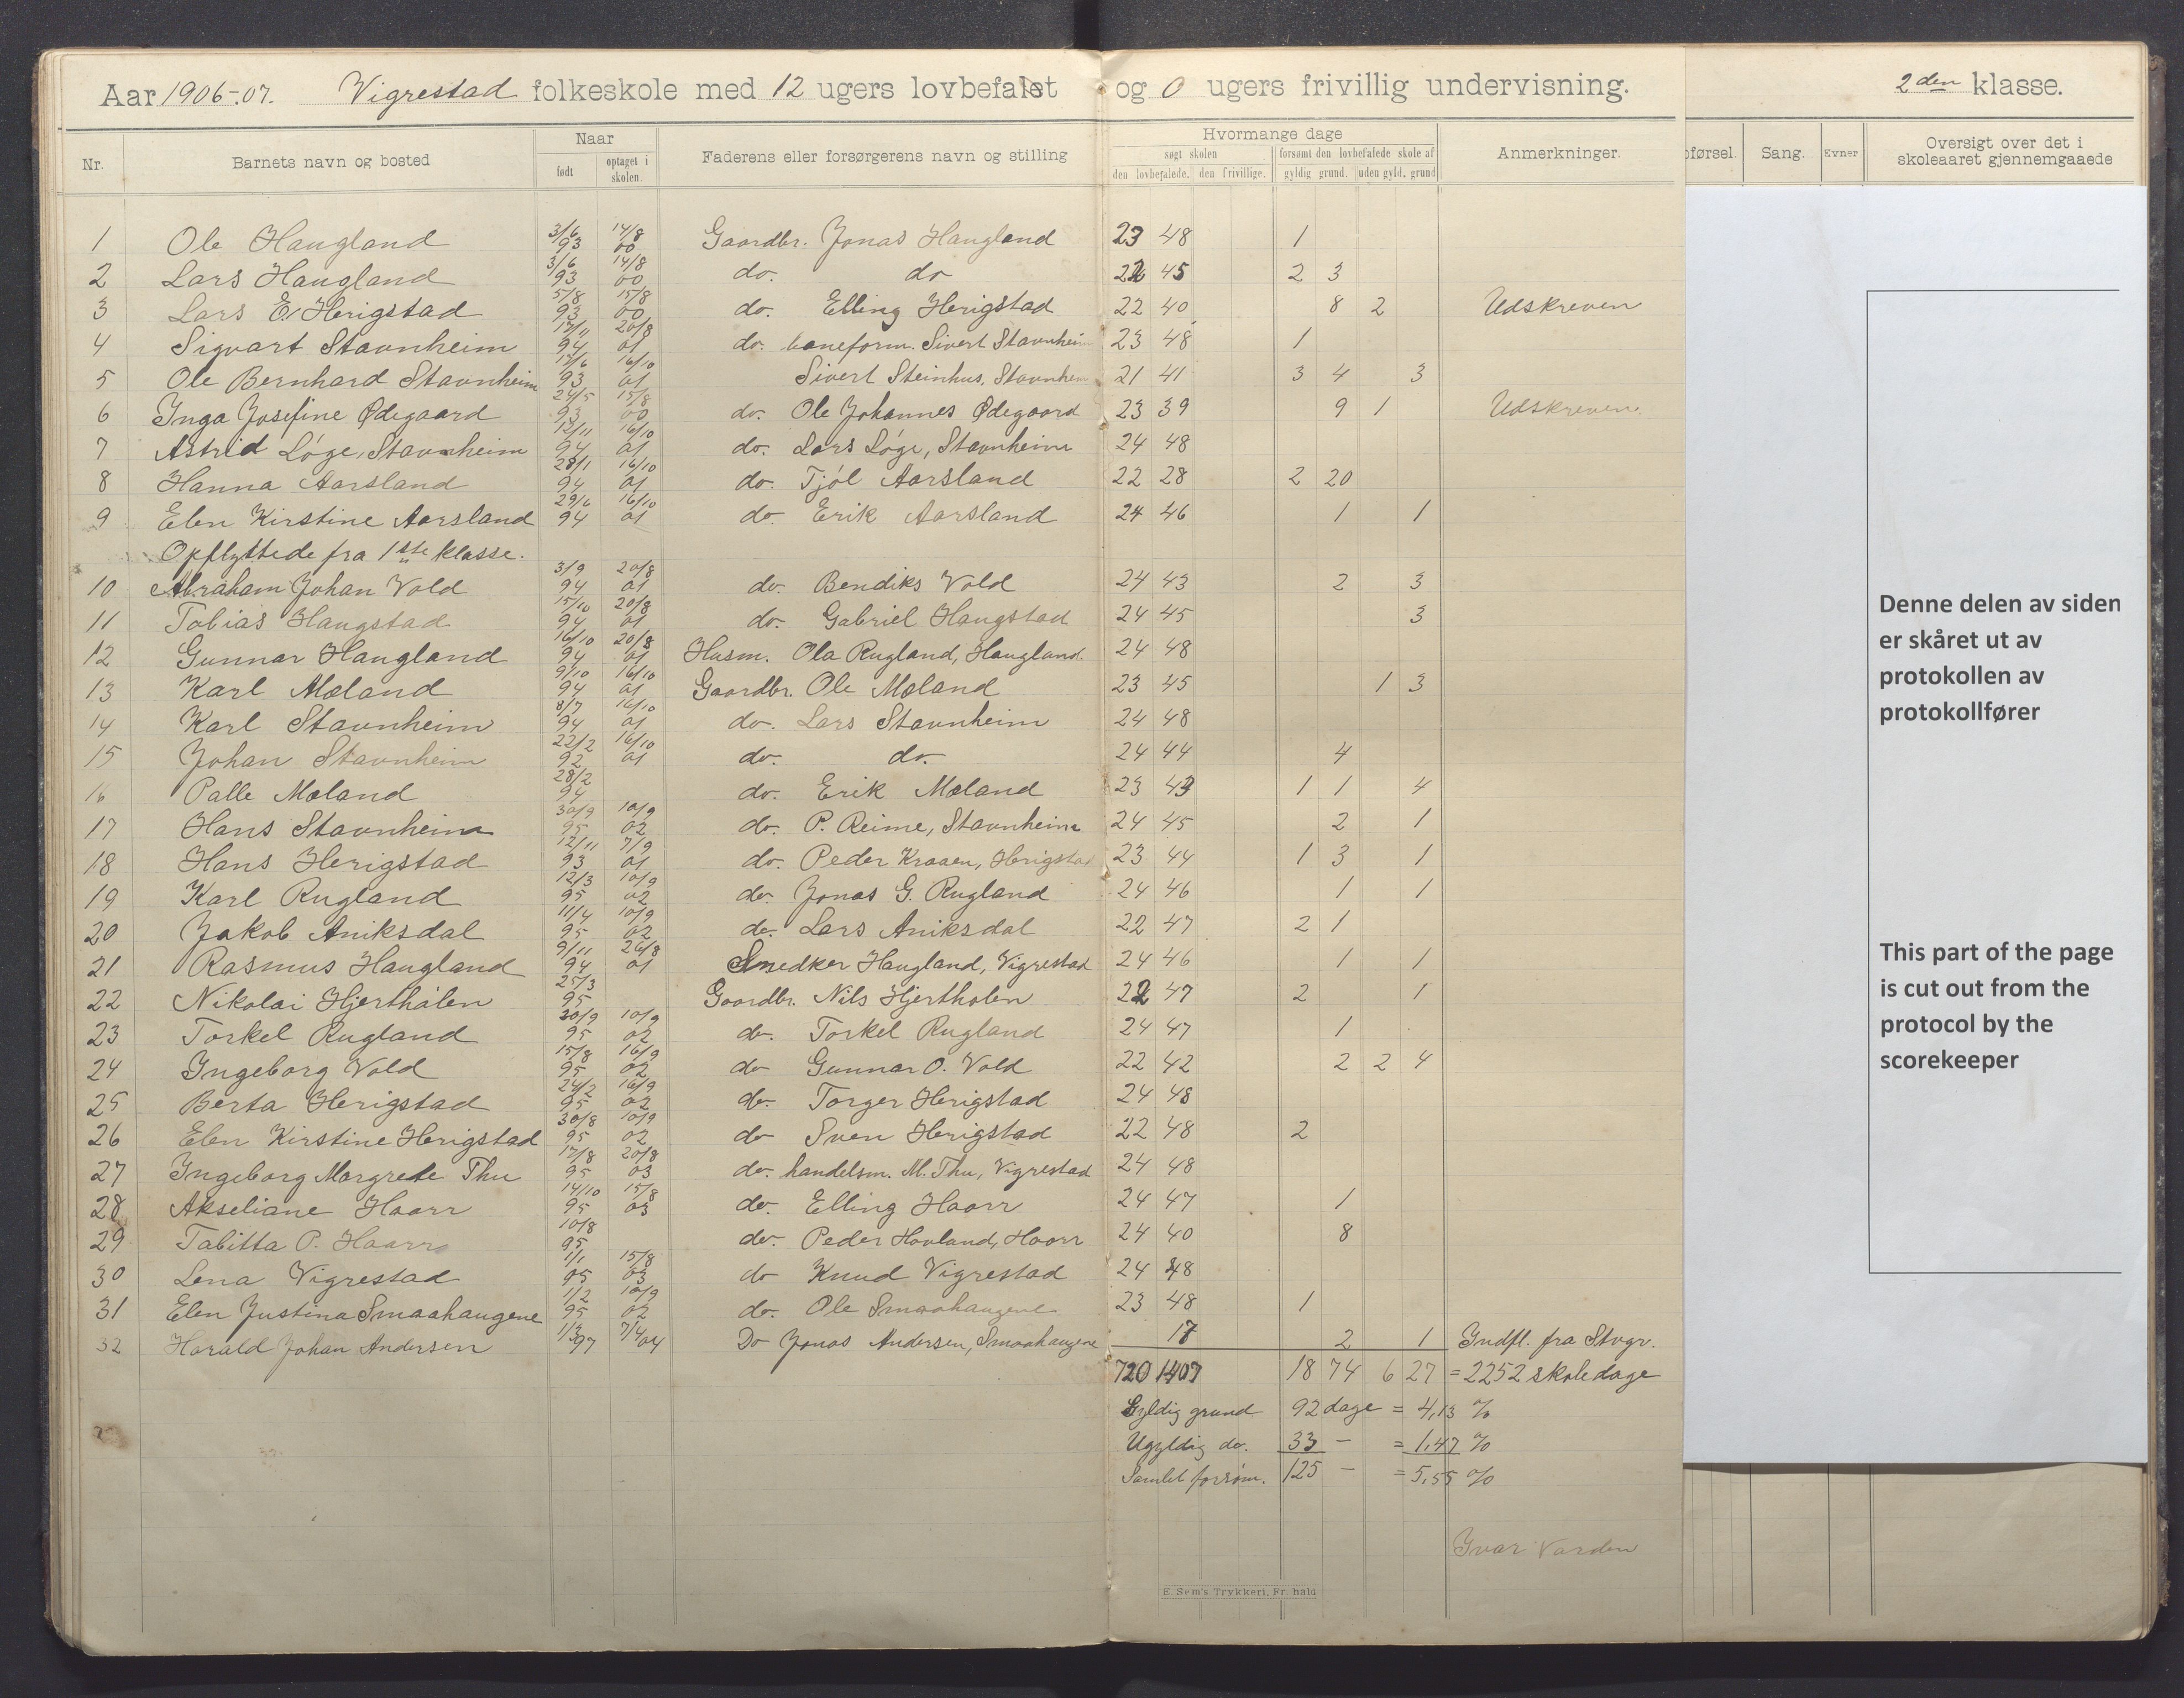 Aar 1906-07. Vigrestad folkeskole med 12 ugers lovbefalet og 0 ugers frivillig undervisning. 2den klasse.
Nr. Barnets navn og bosted Naar født optaget i skolen. Faderens eller forsørgerens navn og stilling Hvormange dage søgt skolen den lovbefalede. den frivillige. forsømt den lovbefalede skole af gyldig grund. uden gyld. grund Anmerkninger. oførsel. Sang. Evner Oversigt over det i skoleaaret gjennemgaaede
1 Ole Haugland 3/6 93 14/8 00 Gaardbr. Jonas Haugland 23 48 1
2 Lars Haugland 3/6 93 14/8 00 do. do 22 45 2 3
3 Lars E. Herigstad 5/8 93 15/8 00 do. Elling Herigstad 22 40 8 2 Udskreven
4 Sigvart Stavnheim 17/11 94 20/8 01 do. baneform. Sivert Stavnheim 23 48 1
5 Ole Bernhard Stavnheim 17/6 93 16/10 01 Sivert Steinhus, Stavnheim 21 41 3 4 3
6 Inga Josefine Ødegaard 24/5 93 15/8 00 do. Ole Johannes Ødegaard 23 39 9 1 Udskreven.
7 Astrid Løge, Stavnheim 12/11 94 16/10 01 do. Lars Løge, Stavnheim 24 48
8 Hanna Aarsland 28/1 94 16/10 01 do. Tjøl Aarsland 22 28 2 20
9 Elen Kirstine Aarsland 29/6 94 16/10 01 do. Erik Aarsland 24 46 1 1
Opflyttede fra 1ste klasse.
10 Abraham Johan Vold 3/9 94 20/8 01 do. Bendiks Vold 24 43 2 3
11 Tobias Haugstad 15/10 94 20/8 01 do. Gabriel Haugstad 24 45 3
12 Gunnar Haugland 16/10 94 20/8 01 Husm. Ola Rugland, Haugland. 24 48
13 Karl Mæland 9/10 94 16/10 01 Gaardbr. Ole Mæland 23 45 1 3
14 Karl Stavnheim 8/7 94 16/10 01 do. Lars Stavnheim 24 48
15 Johan Stavnheim 22/2 92 16/10 01 do. do. 24 44 4
16 Palle Mæland 28/2 94 do. Erik Mæland 23 43 1 1 4
17 Hans Stavnheim 30/9 95 10/9 02 do. P. Reime, Stavnheim 24 45 2 1
18 Hans Herigstad 12/11 93 7/9 01 do. Peder Kraaen, Herigstad 23 44 1 3 1
19 Karl Rugland 12/3 95 10/9 02 do. Jonas G. Rugland 24 46 1 1
20 Jakob Aniksdal 11/4 95 10/9 02 do. Lars Aniksdal 22 47 2 1
21 Rasmus Haugland 9/11 94 26/8 01 Snedker Haugland, Vigrestad 24 46 1 1
22 Nikolai Hjerthålen 25/3 95 Gaardbr. Nils Hjertholen 22 47 2 1
23 Torkel Rugland 20/9 95 10/9 02 do. Torkel Rugland 24 47 1
24 Ingeborg Vold 15/8 95 16/9 02 do Gunnar O. Vold 22 42 2 2 4
25 Berta Herigstad 24/2 95 16/9 02 do. Torger Herigstad 24 48
26 Elen Kirstine Herigstad 30/8 95 10/9 02 do Sven Herigstad 22 48 2
27 Ingeborg Margrete Thu 17/8 95 20/8 03 do. handelsm. M. Thu, Vigrestad 24 48
28 Akseliane Haarr 14/10 95 15/8 03 do. Elling Haarr 24 47 1
29 Tabitta P. Haarr 10/8 95 do. Peder Hovland, Haarr 24 40 8
30 Lena Vigrestad 1/1 95 15/8 03 do Knud Vigrestad 24 48
31 Elen Justina Smaahaugene 1/2 95 10/9 02 do. Ole Smaahaugene 23 48 1
32 Harald Johan Andersen 1/3 97 7/4 04 Do Jonas Andersen, Smaahaugene 17 2 1 Indfl. fra Stvgr.
720 1407 18 74 6 27 = 2252 skoledage
Gyldig grund 92 dage = 4,13 %
Ugyldig do. 33 - = 1,47 %
Samlet forsøm. 125 - = 5,55 %
Ivar Varden
E. Sem's Trykkeri, Fr.hald
Denne delen av siden
er skåret ut av
protokollen av
protokollfører
This part of the page
is cut out from the
protocol by the
scorekeeper